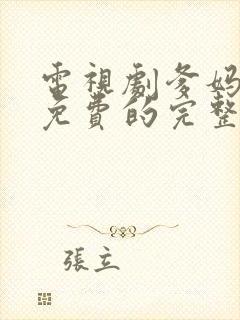 電視劇爹媽
免費的完整
張立